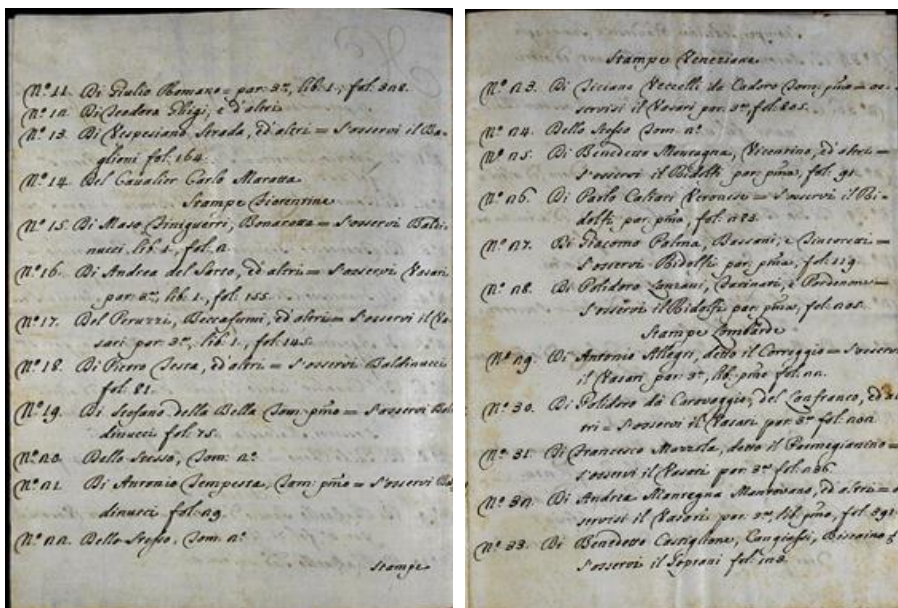 N.º 11. Di Giulio Romano = par: 3.ª, lib. 1., fol: 328.
N.º 12. Di Teodoro Ghigi, e d'altri
N.º 13. Di Vespesiano Strada, ed'altri = S'osservi il Ba-
glioni fol: 164.
N.º 14. Del Caualier Carlo Maratta
Stampe Fiorentine
N.º 15. Di Maso Finiguerri, Bonarota = S'osservi Baldi-
nucci, lib. 1., fol: 2.
N.º 16. Di Andrea del Sarto, ed'altri = S'osservi Vasari
par: 3.ª, lib. 1., fol: 155.
N.º 17. Del Peruzzi, Beccafumi, ed'altri = S'osservi il Va-
sari par: 3.ª, lib: 1., fol: 145.
N.º 18. Di Pietro Testa, ed'altri = S'osservi Baldinucci
fol: 81.
N.º 19. Di Stefano della Bella Tom: pmo = S'osservi Bal
dinucci fol: 75.
N.º 20. Dello Stesso, Tom: 2.º
N.º 21. Di Antonio Tempesta, Tom: pmo = S'osservi Bal
dinucci fol: 29.
N.º 22. Dello Stesso, Tom: 2.º
Stampe
Stampe Veneziane
N.º 23. Di Tiziano Vecelli da Cadoro Tom: pmo = os-
servisi il Vasari par: 3.ª fol: 805.
N.º 24. Dello Stesso Tom: 2.º
N.º 25. Di Benedetto Montagna, Vicentino, ed'altri =
S'osservi il Ridolfi par: pma, fol: 91.
N.º 26. Di Paolo Caliari Veronese = S'osservi il Ri-
dolfi par: pma, fol: 283.
N.º 27. Di Giacomo Palma, Bassani, e Tintoretti =
S'osservi Ridolfi par: pma, fol: 119.
N.º 28. Di Polidoro Lanzani, e Pordenone =
S'osservi il Ridolfi par: pma, fol: 205.
Stampe Lombarde
N.º 29. Di Antonio Allegri, detto il Correggio = S'osservi
il Vasari par: 3.ª, lib: pmo fol: 22.
N.º 30. Di Polidoro da Caravaggio, del Lanfranco, ed al
tri = S'osservi il Vasari par: 3.ª fol: 202.
N.º 31. Di Francesco Mazzola, detto il Parmegianino =
S'osservi il Vasari par: 3.ª fol: 236.
N.º 32. Di Andrea Mantegna Mantovano, ed'altri = o
servisi il Vasari par: 2.ª, lib: pmo, fol: 391
N.º 33. Di Benedetto Castiglione, Cangiassi, Biscaino
S'osservi il Soprani fol: 123.